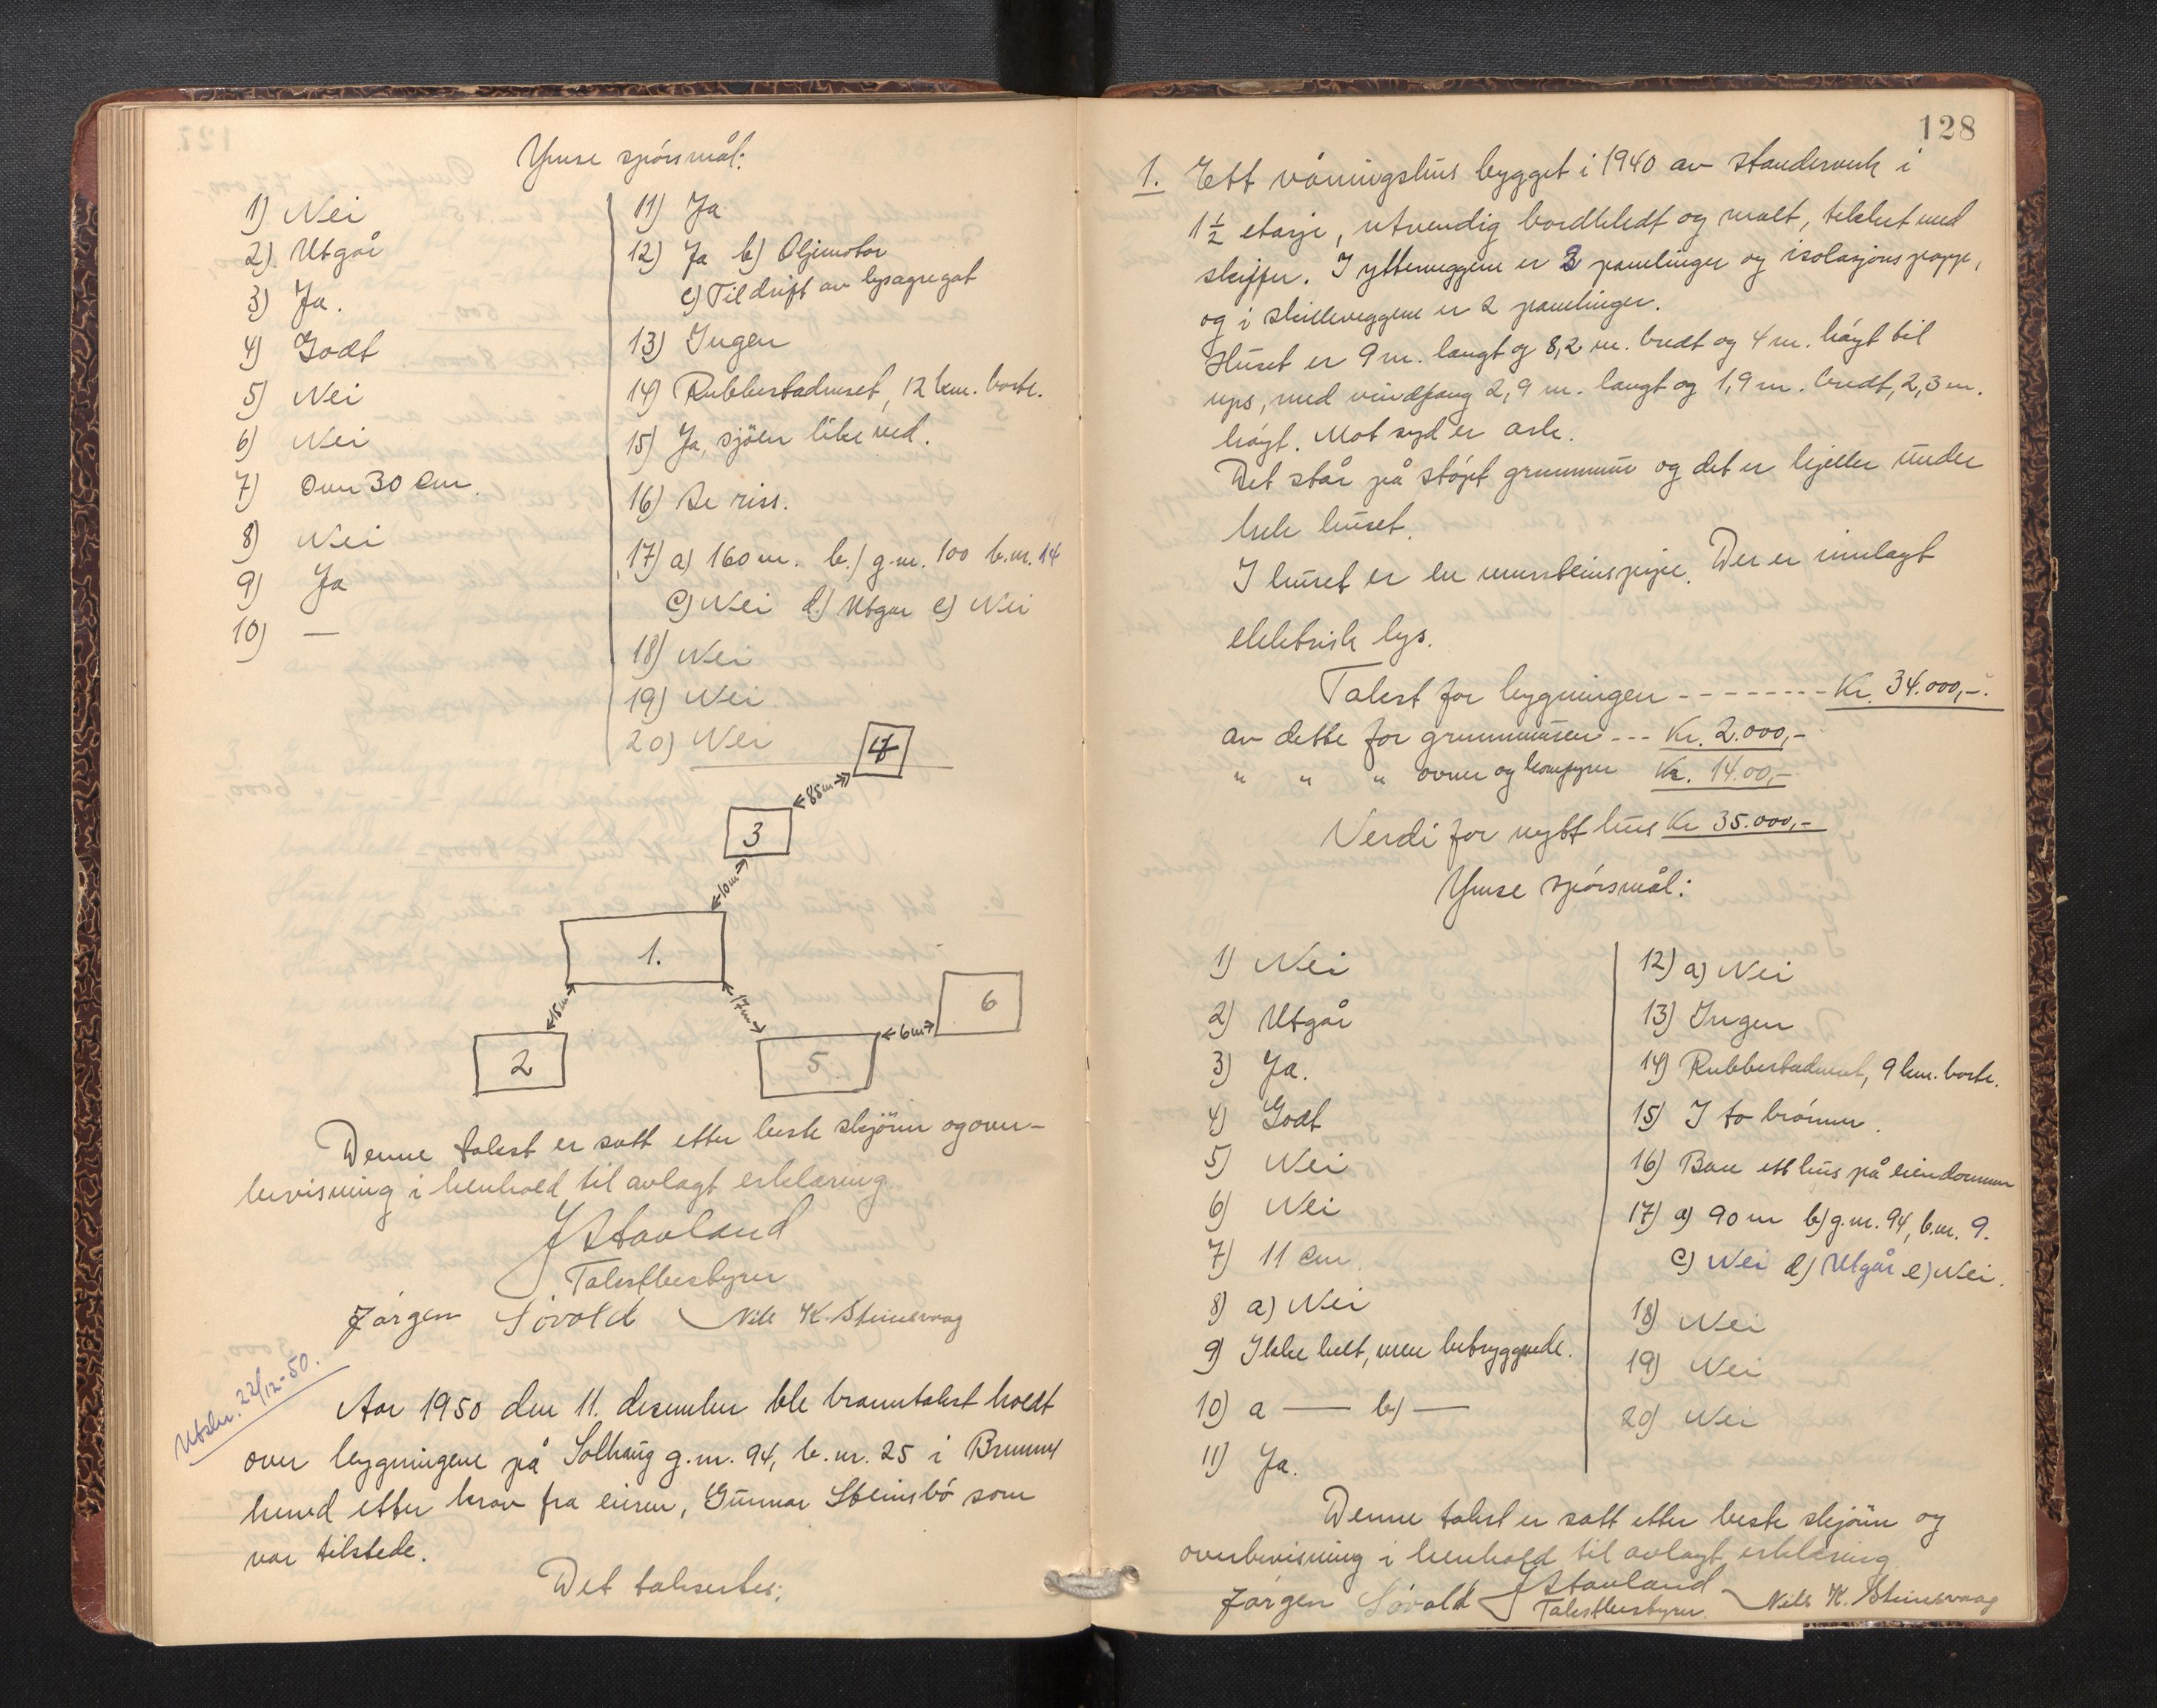 Ymse spörsmål:
1) Nei
2) Utgår
3) Ja.
4) Godt
5) Nei
6) Nei
7) Over 30 cm.
8) Nei
9) Ja
10) —
11) Ja
12) Ja b) Oljemotor
c) Til drift av lysagregat
13) Ingen
14) Rubbestadneset, 12 km. borte.
15) Ja, sjöen like ved.
16) Se riss.
17) a) 160 m. b.) g.nr. 100 b.nr. 14
c) Nei d.) Utgår e) Nei
18) Nei
19) Nei
20) Nei
4
←85m→
3
←10m→
1.
←15m→
←17m→
6
←6m→
2
5
Denne takst er satt etter beste skjönn og over-
bevisning i henhold til avlagt erklæring.
J Stavland
Takstbestyrer
Jørgen Søvold Nils K. Steinsvaag
Utskr. 22/12-50.
Aar 1950 den 11. desember ble branntakst holdt
over bygningene på Solhaug g.nr. 94, b.nr. 25 i
herred etter krav fra eieren, Gunnar Steinsbö som
var tilstede.
Det takseres:
128
1. Ett våningshus bygget i 1940 av standerverk i
1½ etasje, utvendig bordkledt og malt, tekket med
skiffer. I ytterveggene er 3 panelinger og isolasjonspapp,
og i skilleveggene er 2 panelinger.
Huset er 9 m. langt og 8,2 m. bredt og 4 m. höyt til
ups, med vindfang 2,9 m. langt og 1,9 m. bredt, 2,3 m.
höyt. Mot syd er ark.
Det står på stöpt grunnmur og det er kjeller under
hele huset.
I huset er en mursteinspipe. Der er innlagt
elektrisk lys.
Takst for bygningen - - - - - - - - Kr. 34.000,-.
av dette for grunnmuren - - - Kr. 2.000,-
" " " ovner og komfyrer Kr. 14.00,-
Verdi for nytt hus Kr 35.000,-
Ymse spörsmål:
1) Nei
2) Utgår
3) Ja.
4) Godt
5) Nei
6) Nei
7) 11 cm.
8) a) Nei
9) Ikke helt, men betryggende.
10) a — b) —
11) Ja.
12) a) Nei
13) Ingen
14) Rubbestadneset, 9 km. borte.
15) I to brönner.
16) Bare ett hus på eiendommen
17) a) 90 m b) g.nr. 94, b.nr. 9.
c) Nei d) Utgår e) Nei.
18) Nei
19) Nei
20) Nei
Denne takst er satt etter beste skjönn og
overbevisning i henhold til avlagt erklæring
Jørgen Søvold J Stavland Nils K. Steinsvaag
Takstbestyrer